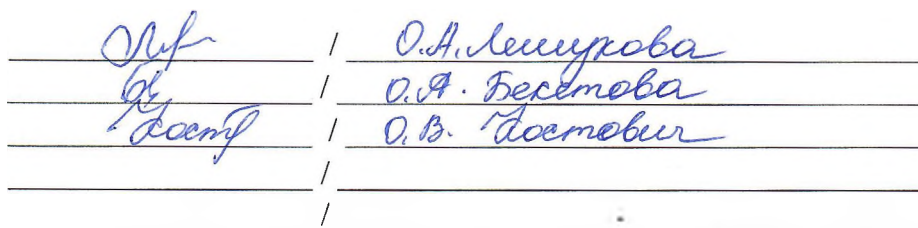 / О.А. Лешукова
/ О.А. Бекетова
Костр / О.В. Костович
/
/